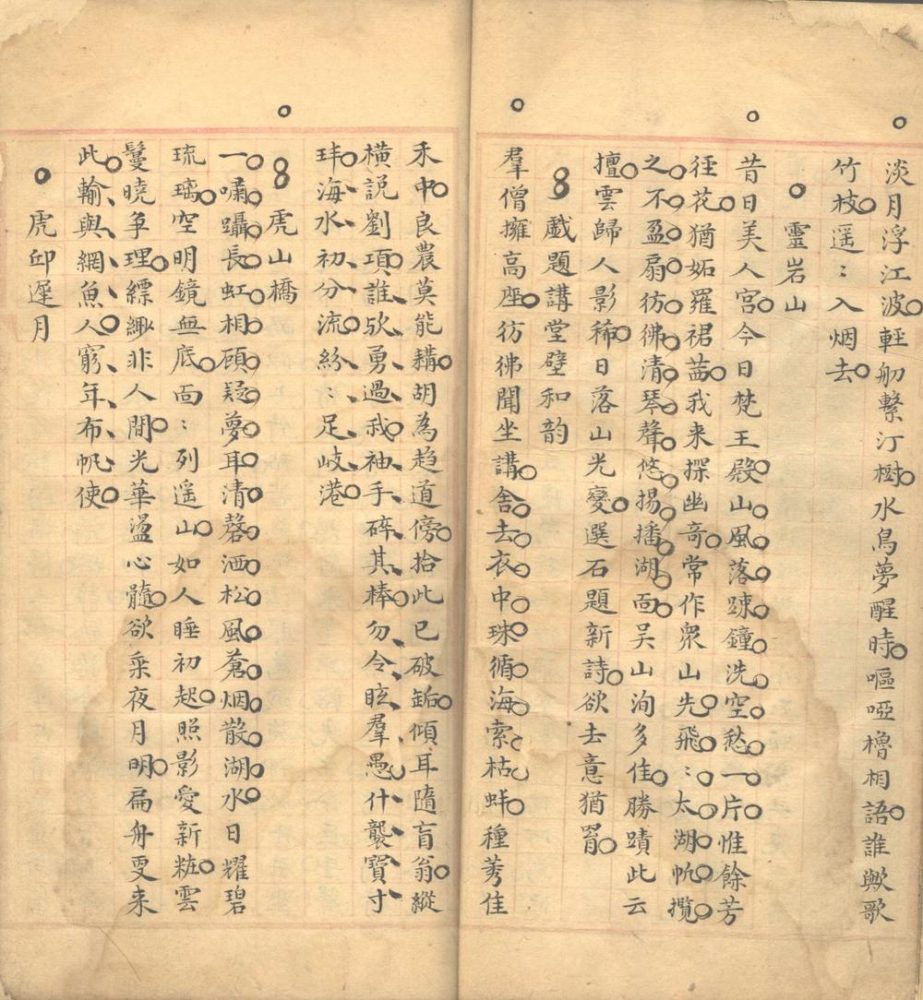 淡月浮江波輕舠繫汀樹水鳥夢醒時嘔啞櫓相語誰歟歌
竹枝遥〻入烟去
靈岩山
昔日美人宮今日梵王殿山風落疎鐘洗空愁一片惟餘芳
徑花猶妬羅裙茜我来探幽奇常作衆山先飛〻太湖帆攬
之不盈扇彷彿清琴聲悠揚播湖面吴山洵多佳勝蹟此云
擅雲歸人影稀日落山光變選石題新詩欲去意猶罥
戲題講堂壁和韵
羣僧擁高座彷彿聞坐講舍去衣中珠循海索枯蚌種莠佳
禾中良農莫能耩胡為趋道傍拾此已破缿傾耳隨盲翁縱
橫説劉項誰欤勇過我袖手碎其棒勿令眩羣愚什襲寳寸
玤海水初分流紛〻足岐港
虎山橋
一嘯躡長虹相顾疑夢耳清磬洒松風蒼烟散湖水日耀碧
琉璃空明鏡無底面〻列遥山如人睡初起照影愛新粧雲
鬟曉爭理縹緲非人間光華盪心髓欲乘夜月明扁舟更来
此輸與網魚人窮年布帆使
虎邱遲月